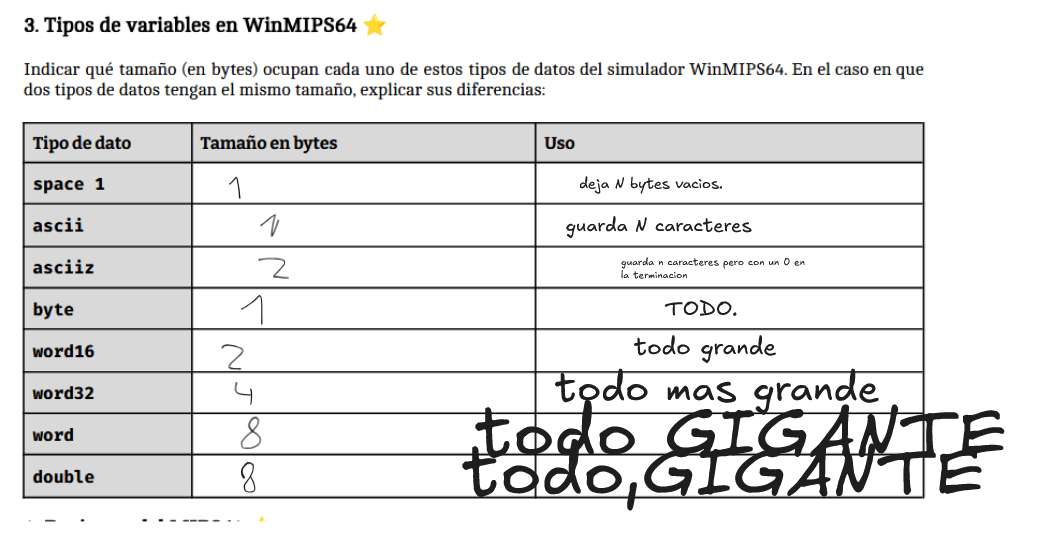 3. Tipos de variables en WinMIPS64 ⭐
Indicar qué tamaño (en bytes) ocupan cada uno de estos tipos de datos del simulador WinMIPS64. En el caso en que
dos tipos de datos tengan el mismo tamaño, explicar sus diferencias:
Tipo de dato Tamaño en bytes Uso
space 1 1 deja N bytes vacios.
ascii guarda N caracteres
asciiz 2 guarda n caracteres pero con un 0 en
la terminacion
byte 1 TODO.
word16 2 todo grande
word32 4 todo mas grande
word 8 todo GIGANTE
double 8 todo,GIGANTE